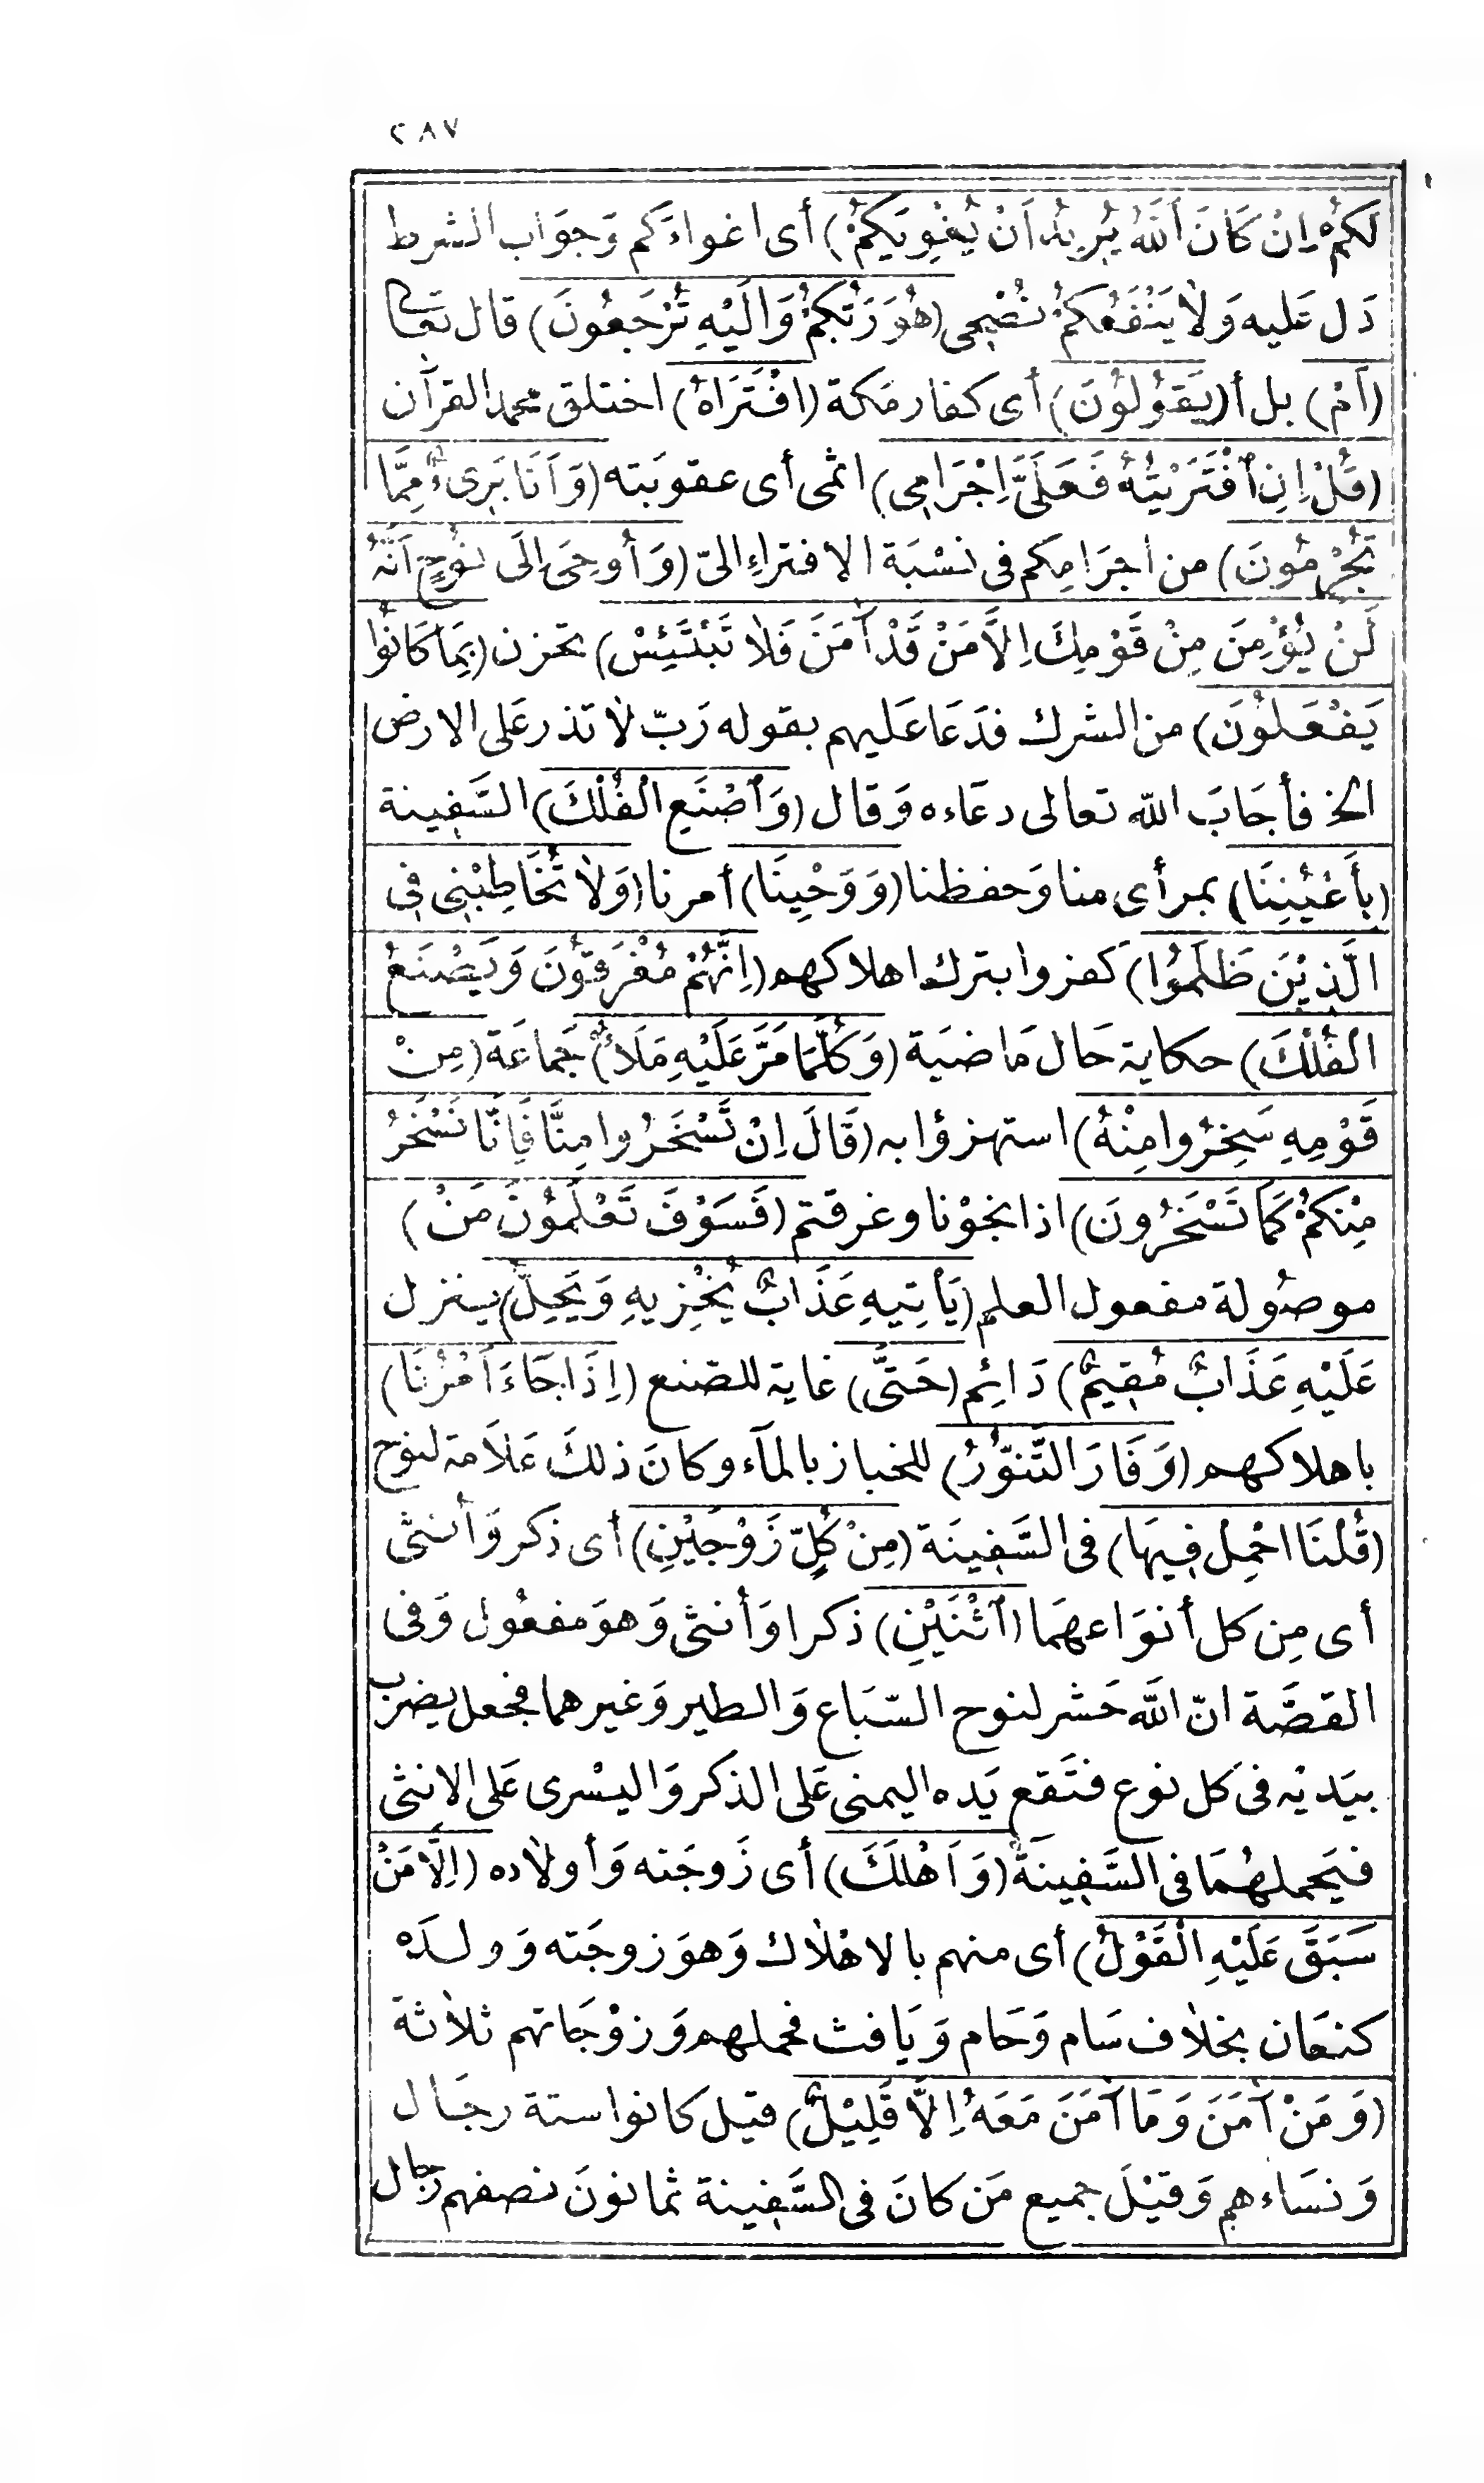 ٢٨٧
لَكُمْ اِنْ كَانَ ٱللّٰهُ يُرِيدُ اَنْ يُغْوِيَكُمْ) أى اغواءَكم وَجوَاب الشرط
دَل عَليه وَلَا يَنْفَعُكُمْ نُصْحِى (هُوَ رَبُّكُمْ وَاِلَيْهِ تُرْجَعُونَ) قال تعَالى
(اَمْ) بل أ (يَقُولُونَ) أى كفار مَكة (افْتَرَاهُ) اختلق محمد القرآن
(قُلْ اِنِ ٱفْتَرَيْتُهُ فَعَلَىَّ اِجْرَامِى) اثمى أى عقوبَته (وَاَنَا بَرِىءٌ مِمَّا
تُجْرِمُونَ) من اجرَامِكم فى نسْبَة الافتراءِ الىّ (وَأُوحِىَ اِلَى نُوحٍ اَنَّهُ
لَنْ يُؤْمِنَ مِنْ قَوْمِكَ اِلَّا مَنْ قَدْ آمَنَ فَلَا تَبْتَئِسْ) تحزن (بِمَا كَانُوا
يَفْعَلُونَ) من الشرك فدَعَا عَليهم بقوله رَبّ لَا تذر عَلى الارض
الخ فأجَابَ اللّه تعالى دعَاءه وَقال (وَٱصْنَعِ الْفُلْكَ) السَّفِينة
(بِأَعْيُنِنَا) بمرأى منا وَحفظنا (وَوَحْيِنَا) أمرنا (وَلَا تُخَاطِبْنِى فِى
الَّذِيْنَ ظَلَمُوا) كفروا بترك اهلاكهم (اِنَّهُمْ مُغْرَقُونَ وَيَصْنَعُ
الْفُلْكَ) حكاية حَال مَاضيَة (وَكُلَّمَا مَرَّ عَلَيْهِ مَلَأٌ) جَماعَة (مِنْ
قَوْمِهِ سَخِرُوا مِنْهُ) استهزؤا به (قَالَ اِنْ تَسْخَرُوا مِنَّا فَاِنَّا نَسْخَرُ
مِنْكُمْ كَمَا تَسْخَرُونَ) اذا نجوْنا وغرقتم (فَسَوْفَ تَعْلَمُونَ مَنْ)
موصُولة مفعول العلم (يَأْتِيهِ عَذَابٌ يُخْزِيهِ وَيَحِلُّ) ينزل
عَلَيْهِ عَذَابٌ مُقِيمٌ) دَائِم (حَتَّى) غاية للصنع (اِذَا جَاءَ اَمْرُنَا)
باهلاكهم (وَفَارَ التَّنُّورُ) للخباز بالمآء وكانَ ذلكَ عَلَامة لنوح
(قُلْنَا احْمِلْ فِيهَا) فى السَّفِينَة (مِنْ كُلٍّ زَوْجَيْنِ) أى ذكر وَأنثى
أى مِن كل أنوَاعهمَا (ٱثْنَيْنِ) ذكرا وَأنثى وَهوَ مفعُول وَفى
القصَّة انّ اللّٰه حَشر لنوح السّبَاع وَالطير وَغيرهما فجعل يضرب
بيَديْه فى كل نوع فتَقع يَده اليمنى عَلى الذكر وَاليسْرى عَلى الانثى
فيَحملهُمَا فى السَّفِينَة (وَاَهْلَكَ) أى زَوجَته وَأولَاده (اِلَّا مَنْ
سَبَقَ عَلَيْهِ الْقَوْلُ) أى منهم بالاهْلَاك وَهوَ زوجَته وَولَدَه
كنعَان بخلَاف سَام وَحَام وَيَافث فحملهم وَزوْجَاتهم ثلَاثة
(وَمَنْ آمَنَ وَمَا آمَنَ مَعَهُ اِلَّا قَلِيْلٌ) قيل كانوا ستة رجَال
وَنسَاءهم وَقيْلَ جميع مَن كانَ فى السَّفِينة ثمانونَ نصفهم رجال